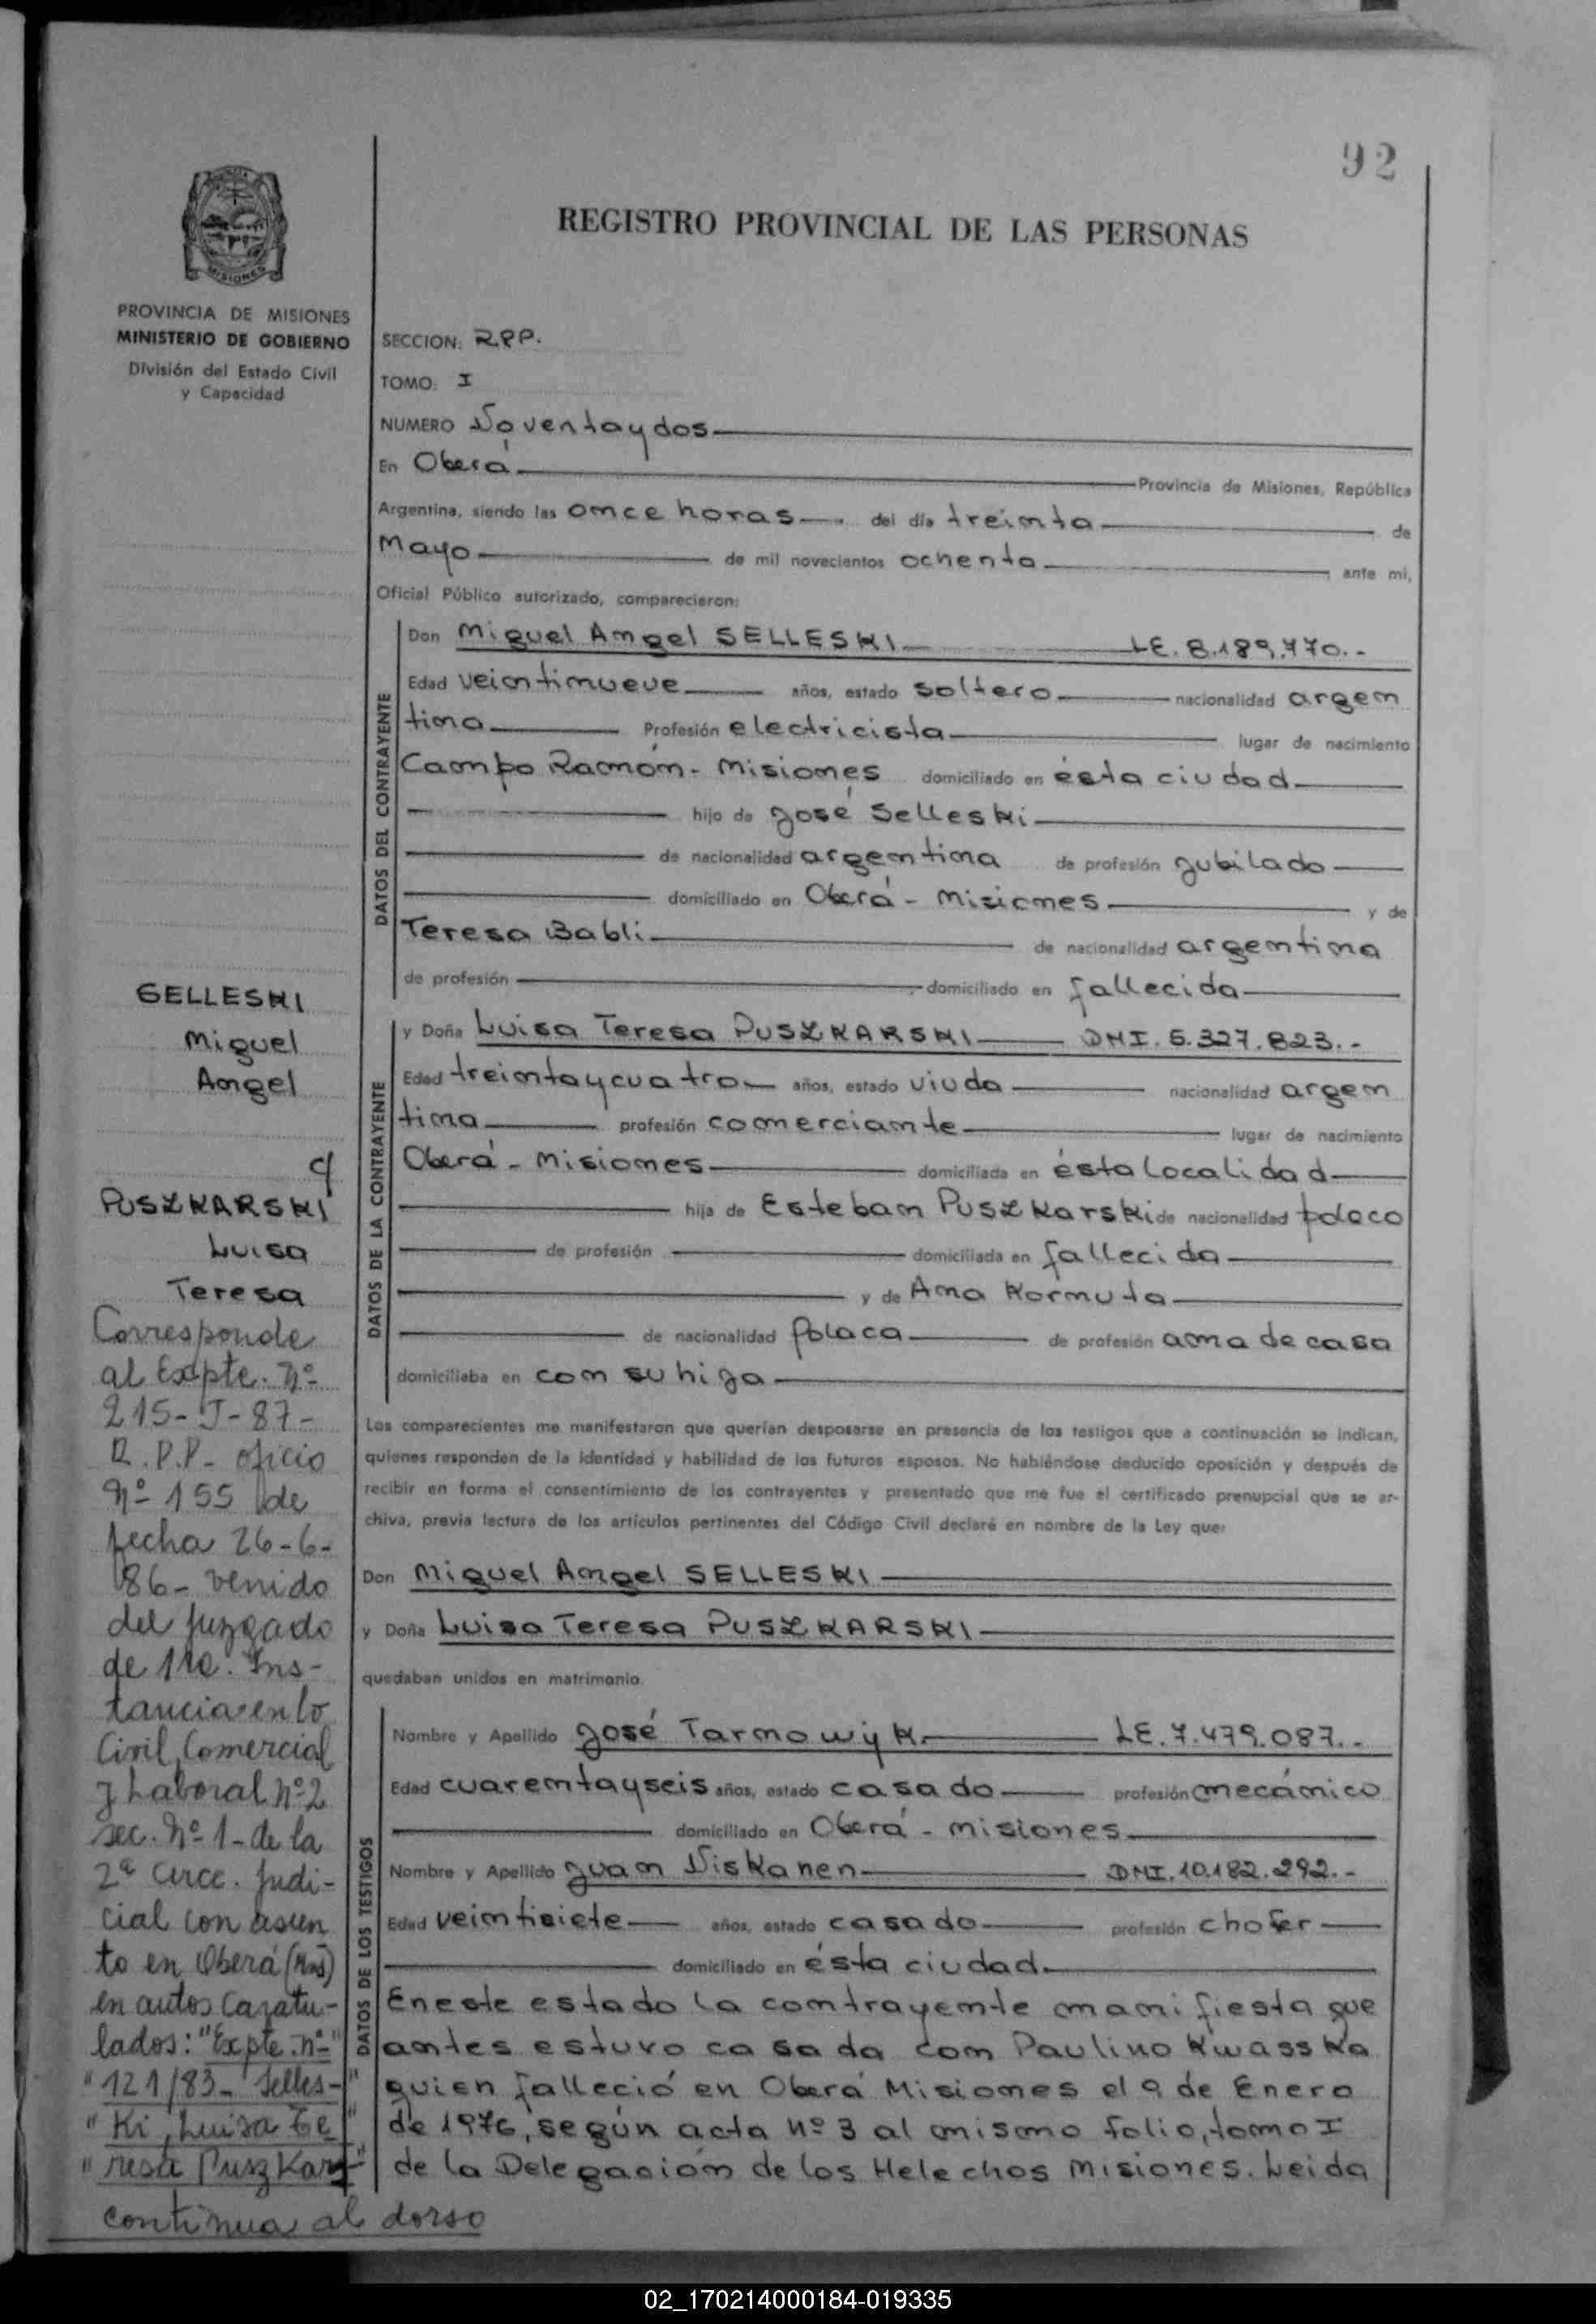 92
REGISTRO PROVINCIAL DE LAS PERSONAS
MISIONES
PROVINCIA DE MISIONES
MINISTERIO DE GOBIERNO
División del Estado Civil
y Capacidad
SECCION: R.P.P.
TOMO: I
NUMERO Noventaydos
En Oberá Provincia de Misiones, República
Argentina, siendo las once horas del día treinta de
Mayo de mil novecientos ochenta ante mi,
Oficial Público autorizado, comparecieron:
DATOS DEL CONTRAYENTE
Don Miguel Angel SELLESKI LE. 8.189.770.-
Edad veintinueve años, estado soltero nacionalidad argen
tina Profesión electricista lugar de nacimiento
Campo Ramón - Misiones domiciliado en ésta ciudad
hijo de José Selleski
de nacionalidad argentina de profesión jubilado
domiciliado en Oberá - Misiones y de
Teresa Babli de nacionalidad argentina
de profesión domiciliado en fallecida
DATOS DE LA CONTRAYENTE
y Doña Luisa Teresa PUSZKARSKI DNI. 5.327.823.-
Edad treintaycuatro años, estado viuda nacionalidad argen
tina profesión comerciante lugar de nacimiento
Oberá - Misiones domiciliada en ésta localidad
hija de Esteban Puszkarski de nacionalidad polaco
de profesión domiciliada en fallecido
y de Ana Kornuta
de nacionalidad Polaca de profesión ama de casa
domiciliaba en con su hija
Los comparecientes me manifestaron que querían desposarse en presencia de los testigos que a continuación se indican,
quienes responden de la identidad y habilidad de los futuros esposos. No habiéndose deducido oposición y después de
recibir en forma el consentimiento de los contrayentes y presentado que me fue el certificado prenupcial que se ar-
chiva, previa lectura de los artículos pertinentes del Código Civil declaré en nombre de la Ley que:
Don Miguel Angel SELLESKI
y Doña Luisa Teresa PUSZKARSKI
quedaban unidos en matrimonio.
DATOS DE LOS TESTIGOS
Nombre y Apellido José Tarnowyk LE. 7.479.087.-
Edad cuarentayseis años, estado casado profesión mecánico
domiciliado en Oberá - Misiones
Nombre y Apellido Juan Niskanen DNI. 10.182.292.-
Edad veintisiete años, estado casado profesión chofer
domiciliado en ésta ciudad
En este estado la contrayente manifiesta que
antes estuvo casada con Paulino Kwasska
quien falleció en Oberá Misiones el 9 de Enero
de 1976, según acta Nº 3 al mismo folio, tomo I
de la Delegación de los Helechos Misiones. Leida
SELLESKI
Miguel
Angel
c/
PUSZKARSKI
Luisa
Teresa
Corresponde
al Expte. Nº
215-J-87-
R.P.P. oficio
Nº 155 de
fecha 26-6-
86- venido
del Juzgado
de 1ra. Ins-
tancia en lo
Civil, Comercial
y Laboral Nº 2
sec. Nº 1- de la
2ª Circ. Judi-
cial con asien
to en Oberá (Mns)
en autos caratu-
lados: "Expte. nº"
"121/83- Selles-"
"Ki, Luisa Te"
"resa Puszkars"
continua al dorso
02_170214000184-019335